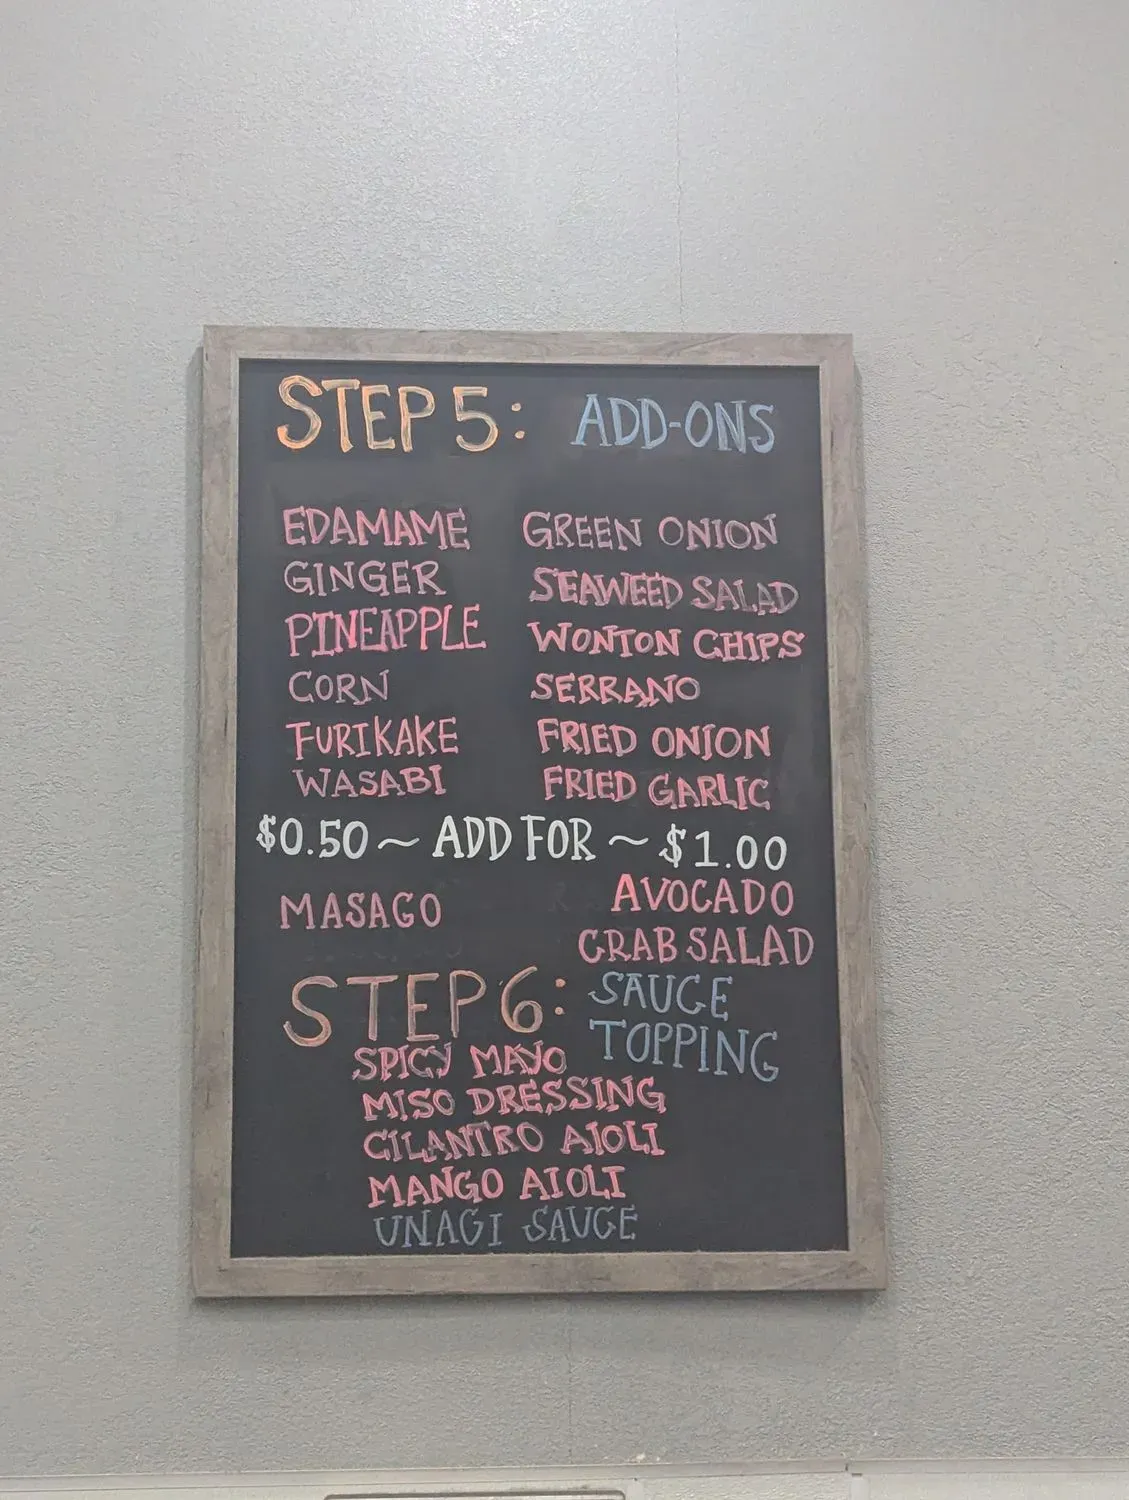 STEP 5: ADD-ONS
EDAMAME GREEN ONION
GINGER SEAWEED SALAD
PINEAPPLE WONTON CHIPS
CORN SERRANO
FURIKAKE FRIED ONION
WASABI FRIED GARLIC
$0.50 ~ ADD FOR ~ $1.00
MASAGO AVOCADO
CRAB SALAD
STEP 6: SAUCE TOPPING
SPICY MAYO
MISO DRESSING
CILANTRO AIOLI
MANGO AIOLI
UNAGI SAUCE